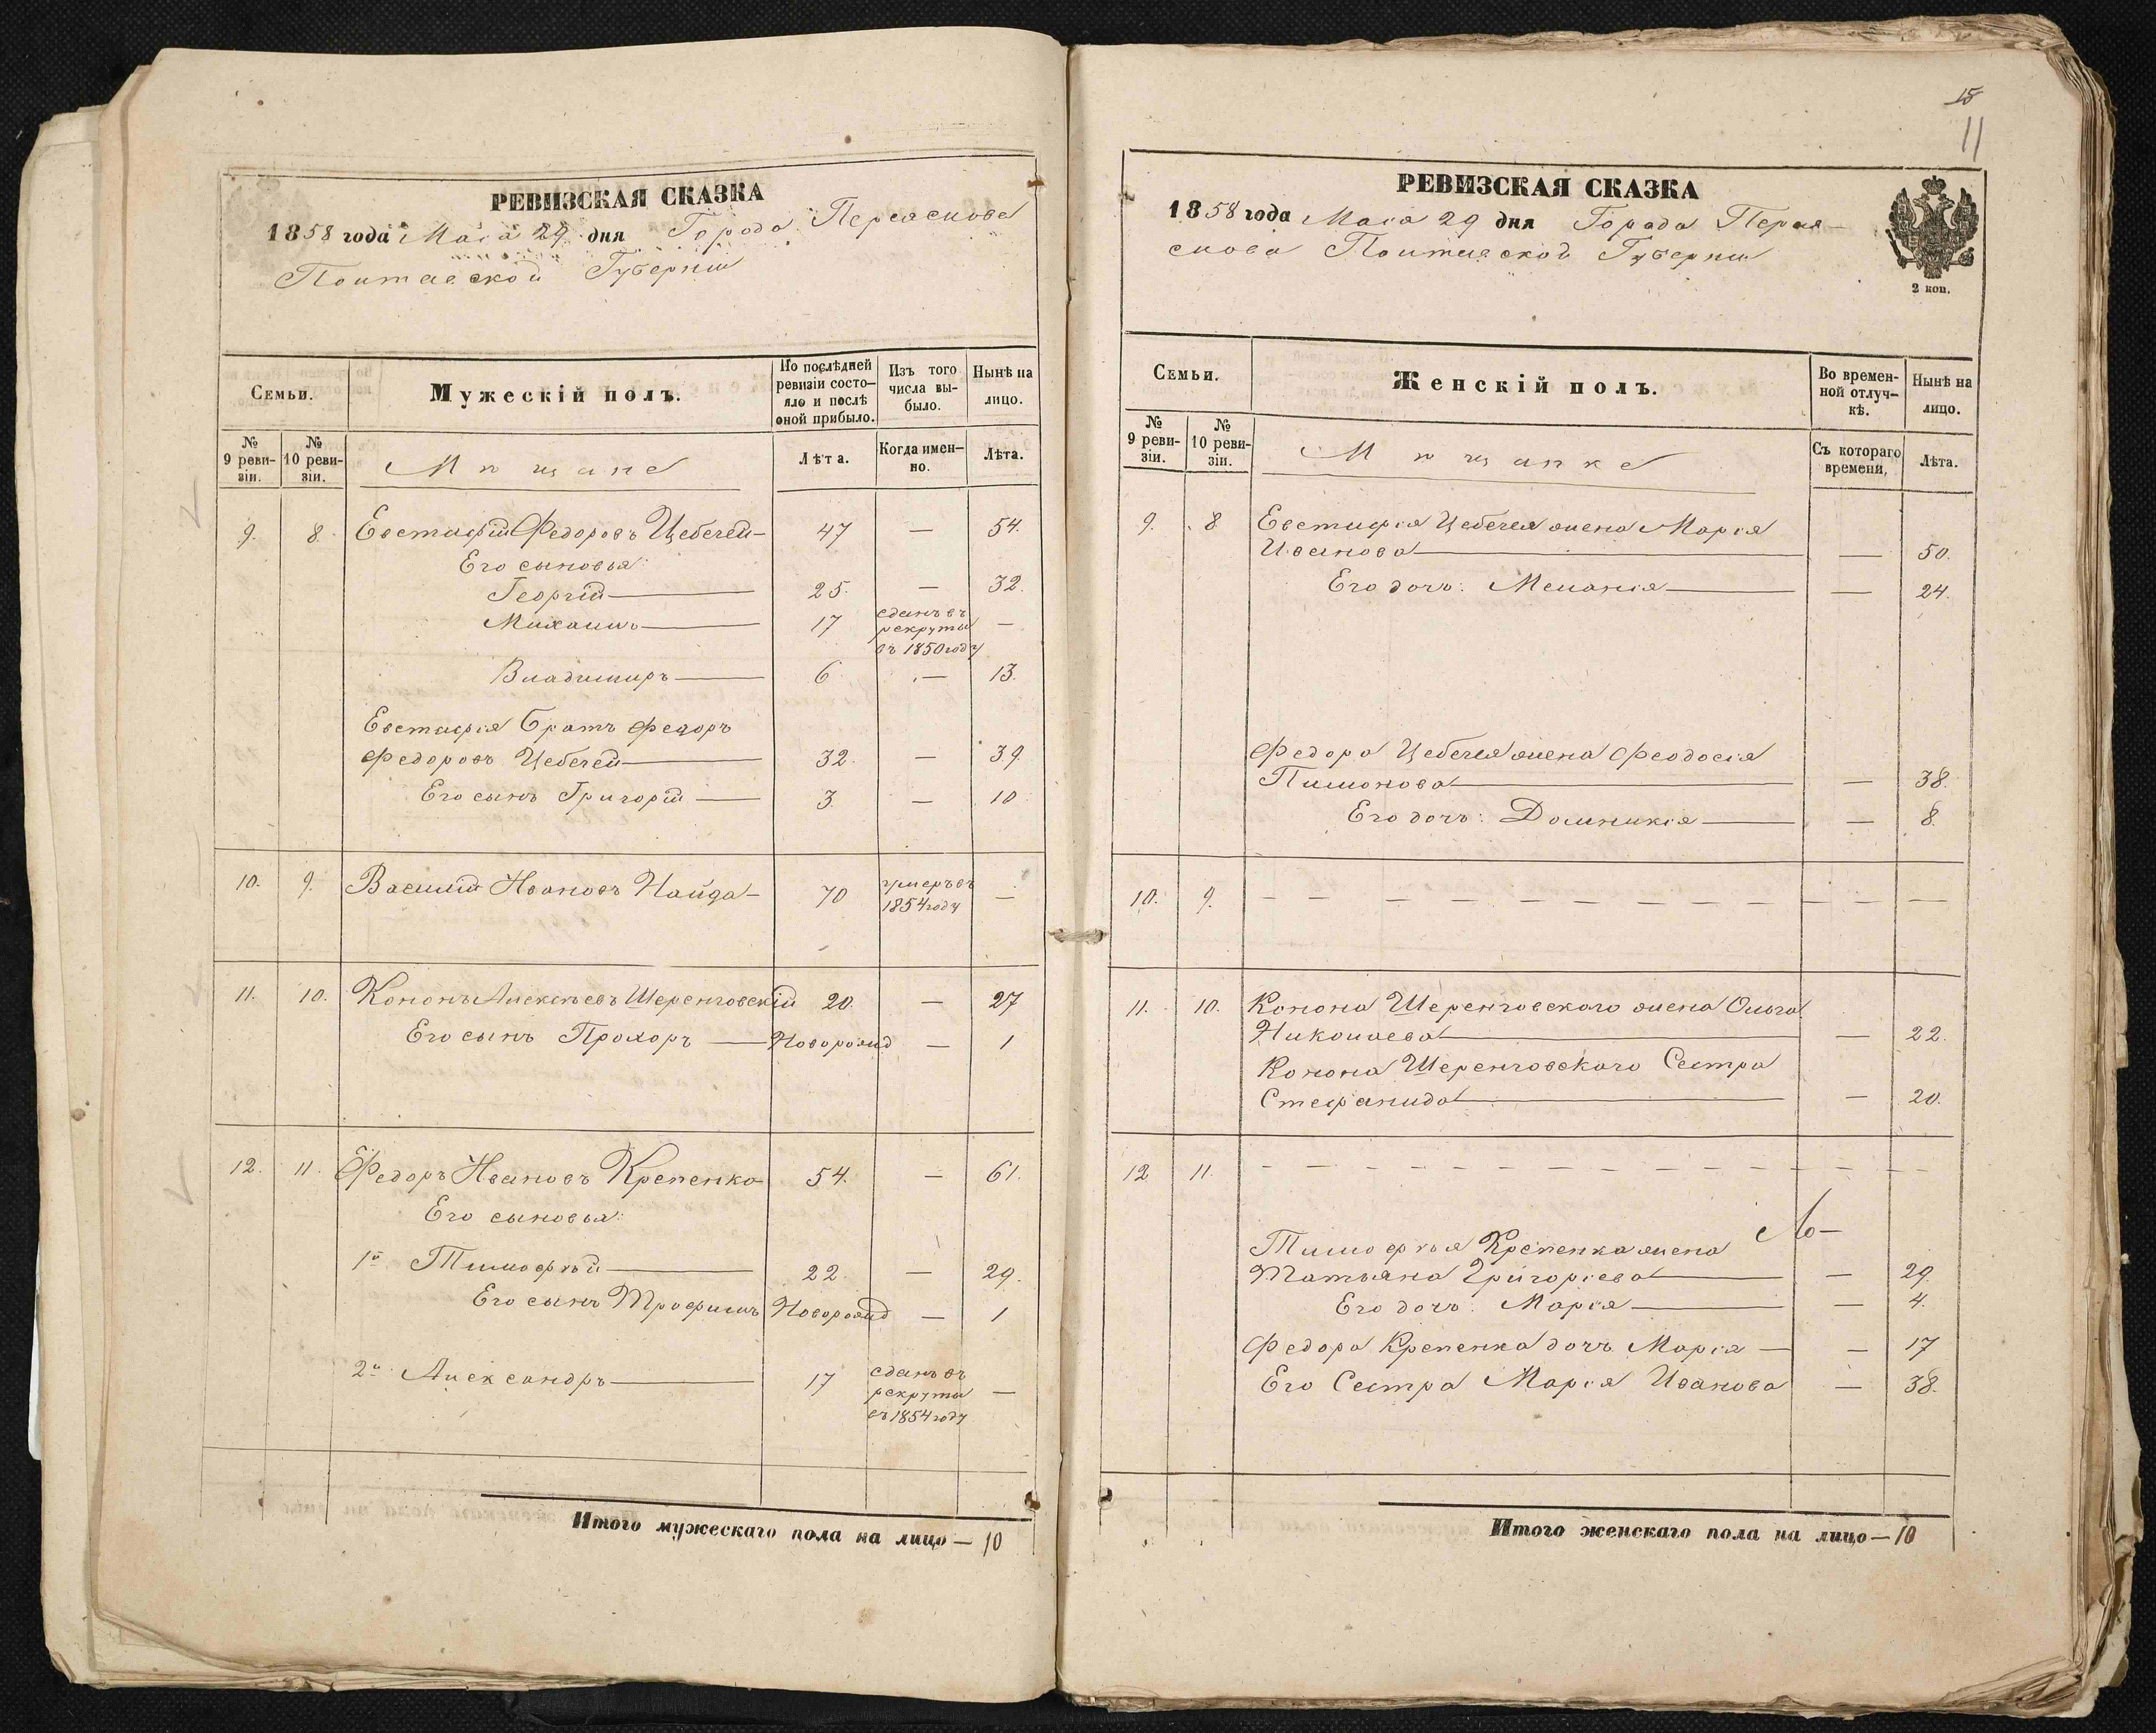 РЕВИЗСКАЯ СКАЗКА
1858 года Маія 29 дня Города Переяслова
Полтавской Губерніи
Семьи.
Мужескій полъ.
По послѣдней ревизіи состояло и послѣ оной прибыло.
Изъ того числа выбыло.
Нынѣ на лицо.
№ 9 ревизіи.
№ 10 ревизіи.
Мѣщане
Лѣта.
Когда именно.
Лѣта.
9. 8. Евстафій Федоровъ Цебечей— 47 — 54.
Его сыновья:
Георгій— 25. — 32.
Михаилъ— 17 сданъ въ рекруты въ 1850 году —
Владимиръ— 6 — 13.
Евстафія братъ Федоръ
Федоровъ Цебечей— 32. — 39.
Его сынъ Григорій— 3. — 10
10. 9. Василій Ивановъ Найда— 70 умеръ въ 1854 году —
11. 10. Кононъ Алексѣевъ Шеренговскій 20. — 27
Его сынъ Прохоръ — Новорожд — 1
12. 11. Федоръ Ивановъ Крепенко 54. — 61.
Его сыновья:
1й Тимофѣй— 22. — 29.
Его сынъ Трофимъ Новорожд — 1
2й Александръ— 17 сданъ въ рекруты въ 1854 году —
Итого мужескаго пола на лицо— 10
15
11
РЕВИЗСКАЯ СКАЗКА
1858 года Маія 29 дня Города Перея-
слова Полтавской Губерніи
2 коп.
Семьи.
Женскій полъ.
Во временной отлучкѣ.
Нынѣ на лицо.
№ 9 ревизіи.
№ 10 ревизіи.
Мѣщанке
Съ котораго времени,
Лѣта.
9. 8 Евстафія Цебечея жена Марія
Иванова— — 50.
Его дочь: Меланія— — 24.
Федора Цебечея жена Феодосія
Пимонова— — 38.
Его дочь: Домникія— — 8.
10. 9. — — — — — — — — — — —
11. 10. Конона Шеренговского жена Ольга
Николаева— — 22.
Конона Шеренговскаго Сестра
Стефанида— — 20.
12 11. — — — — — — — — — — —
Тимофѣя Крепенка жена
Татьяна Григоріева— — 29.
Его дочь: Марія— — 4.
Федора Крепенка дочь Марія — — 17
Его Сестра Марія Иванова — 38.
Итого женскаго пола на лицо—10